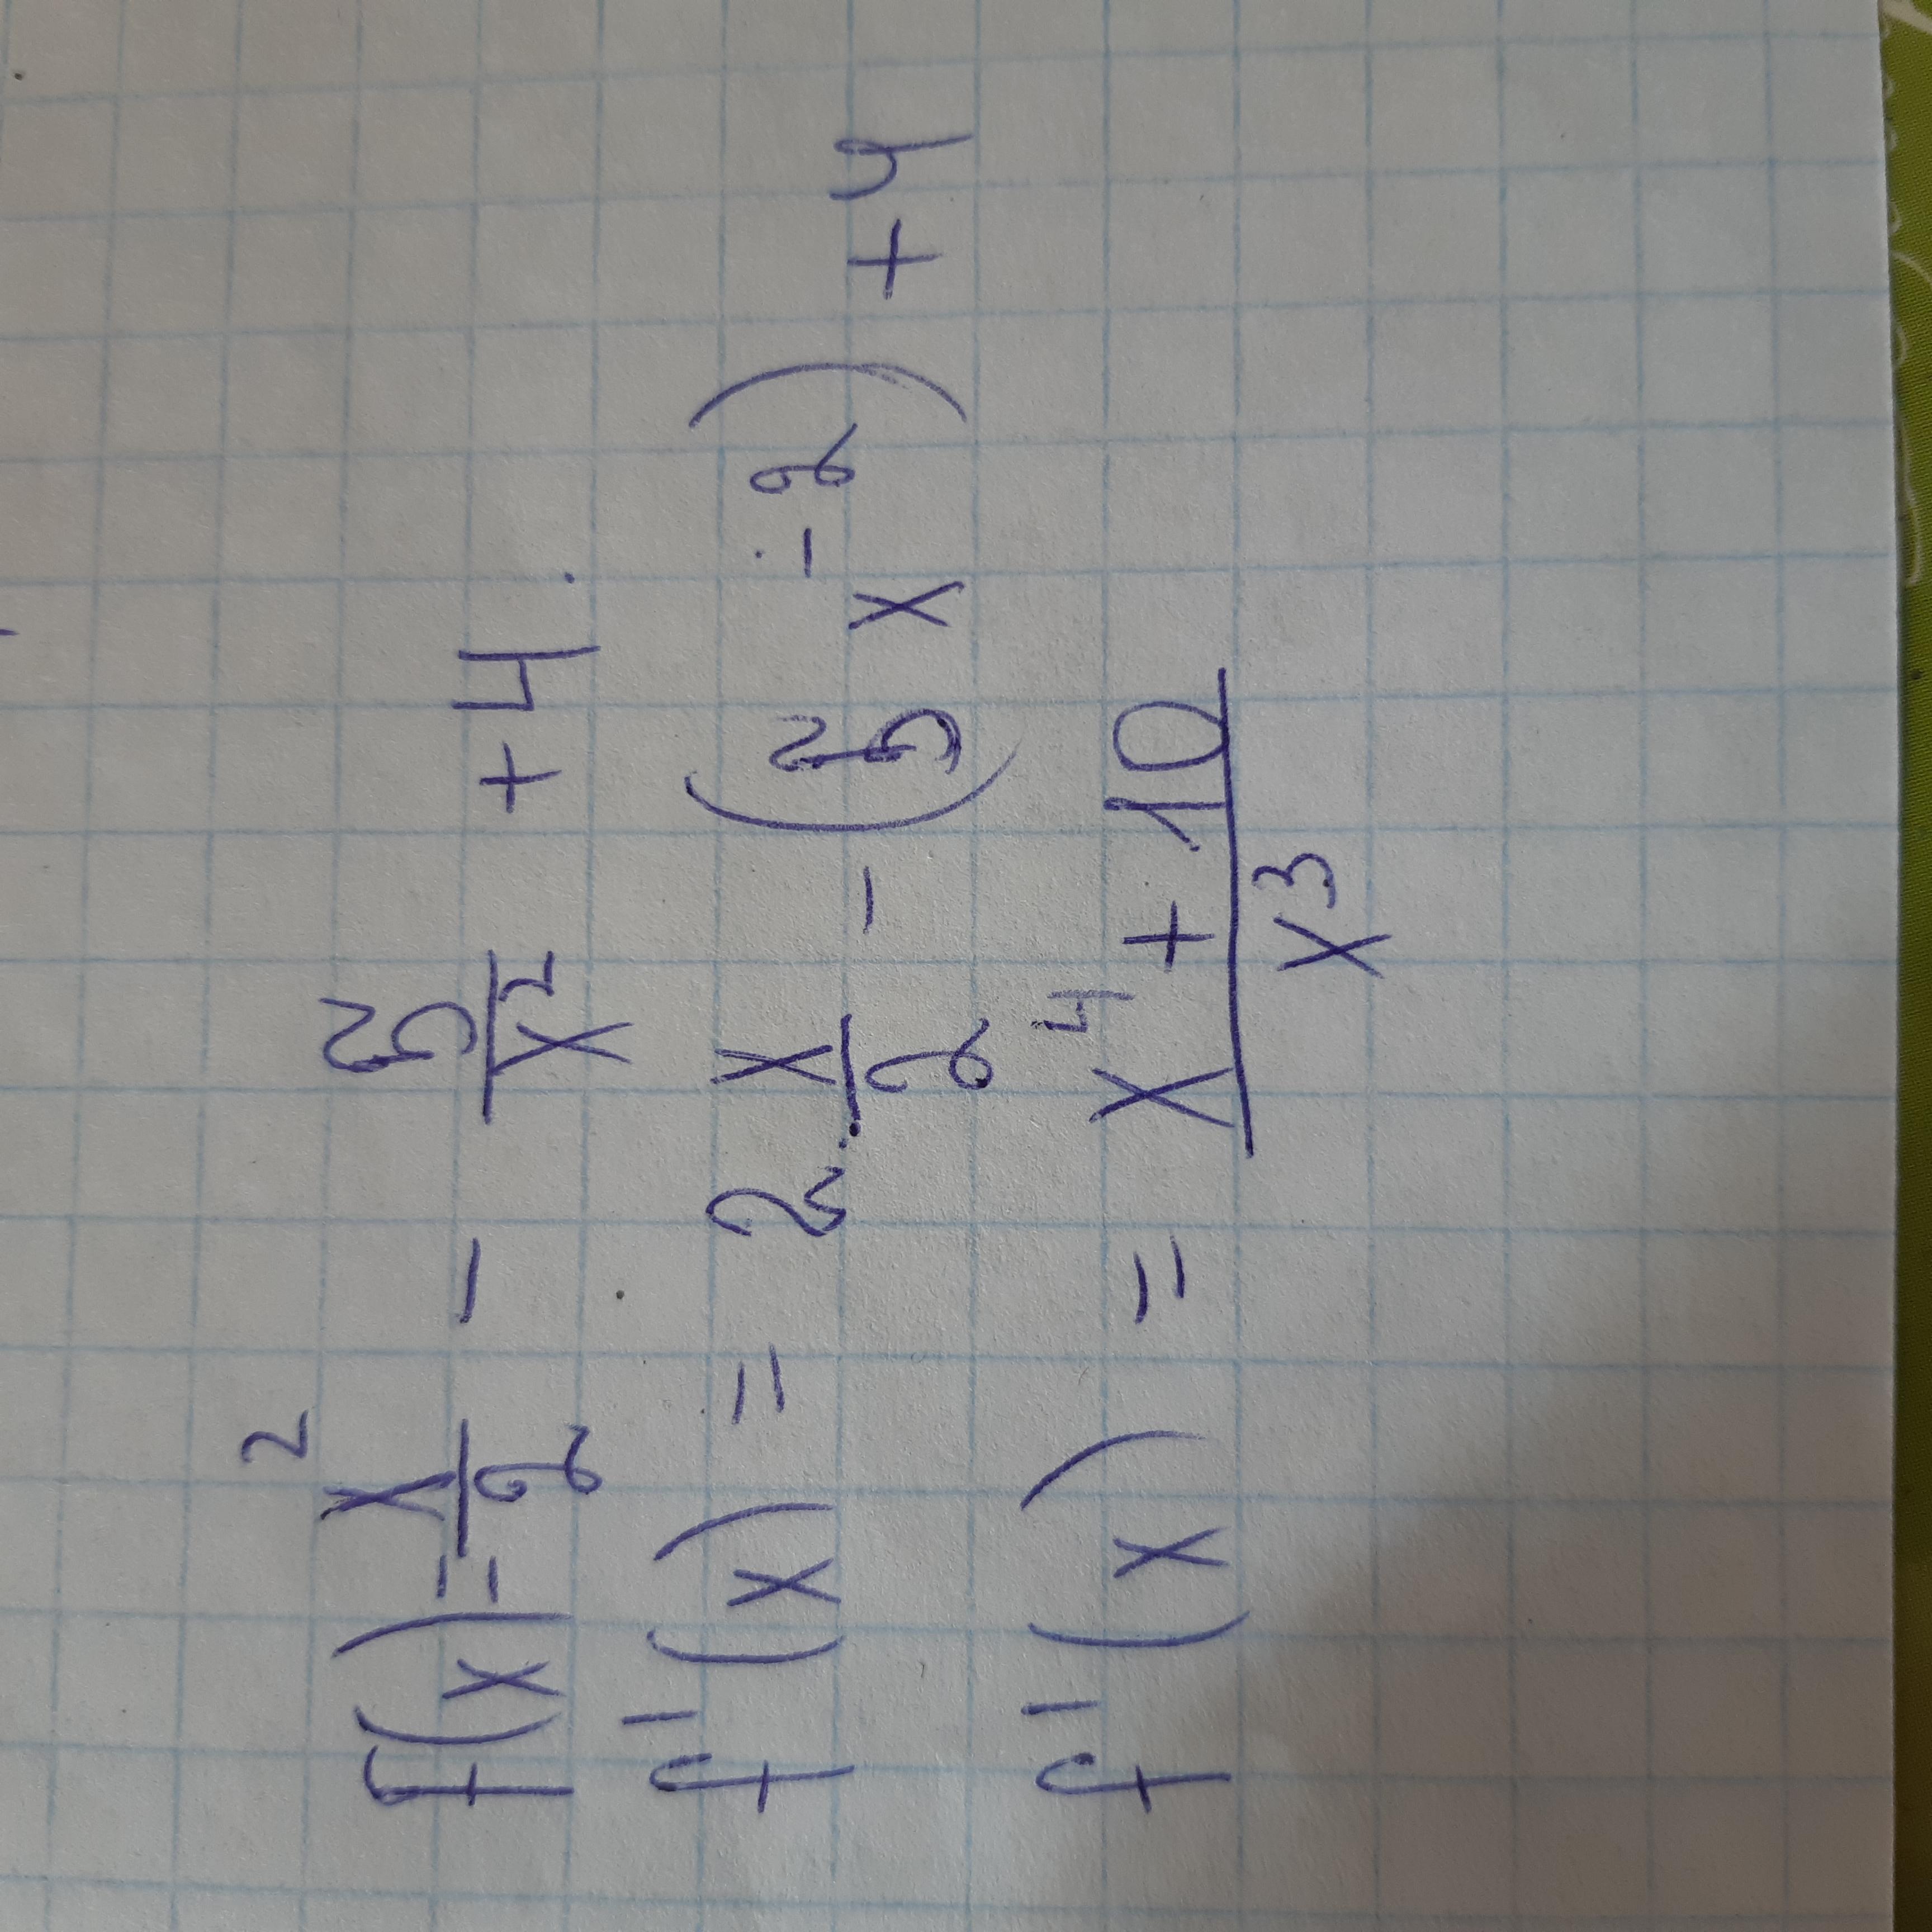 f(x) = x²/2 - 5/x² + 4
f'(x) = 2 · x/2 - (5x⁻²) + 4
f'(x) = (x⁴ + 10)/x³